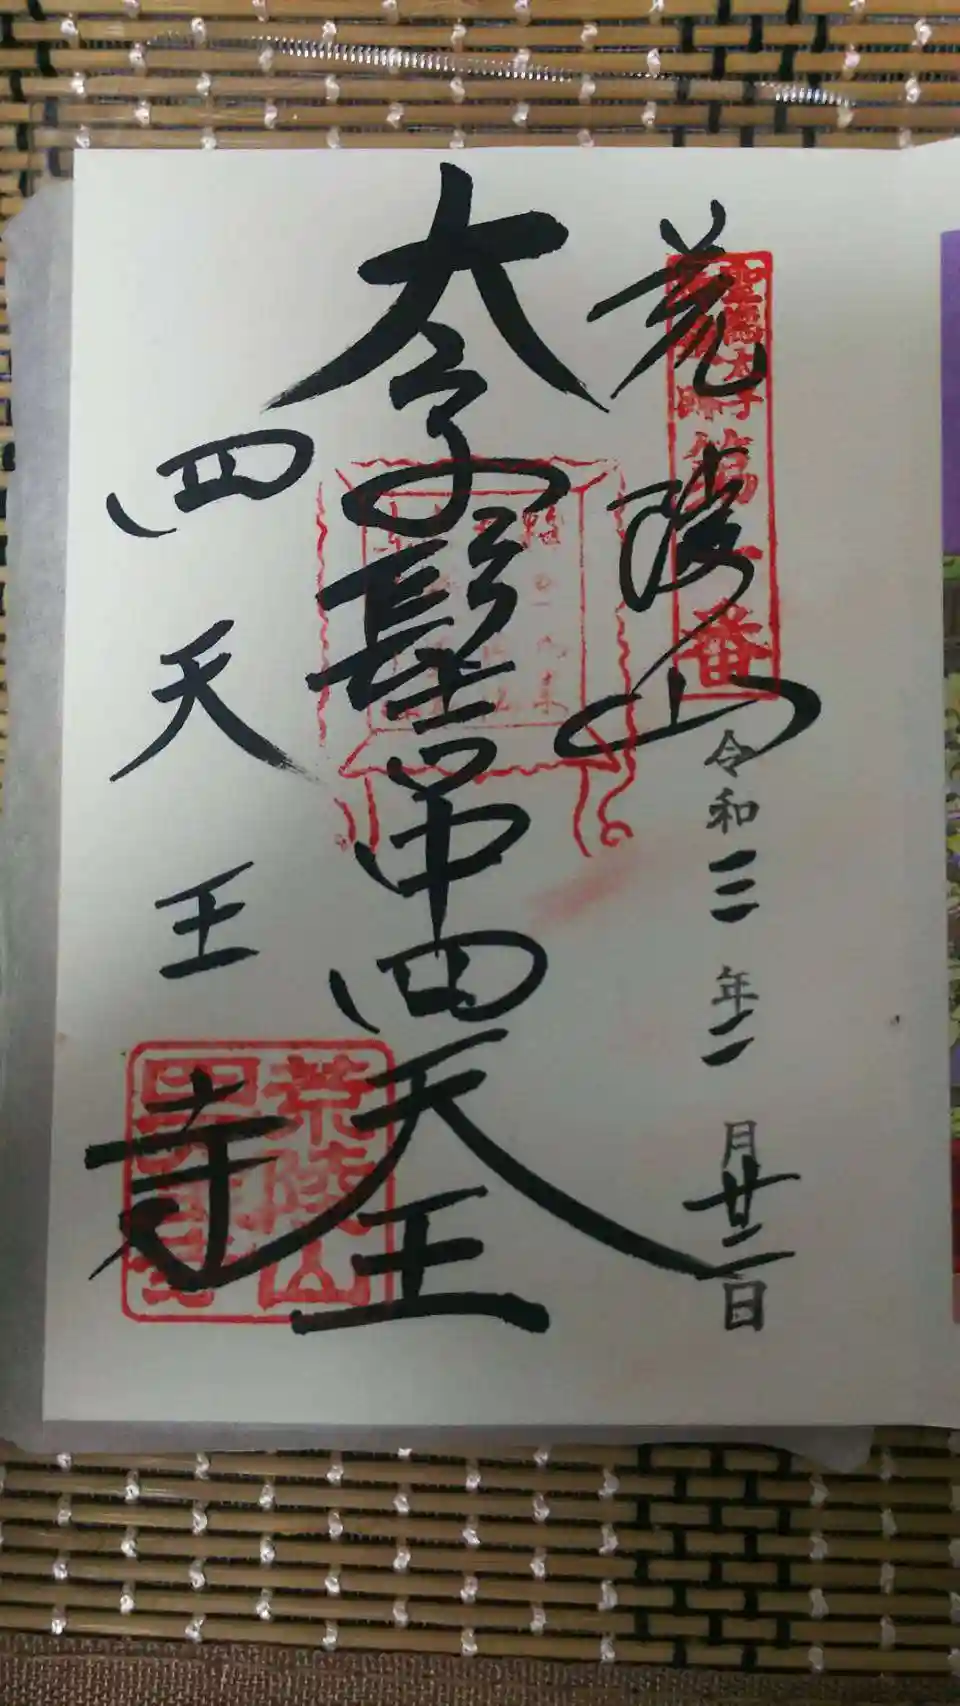 聖徳太子
第一番
荒陵山
令和三年二月廿二日
太子髻中四天王
四天王寺
荒陵山
四天王寺